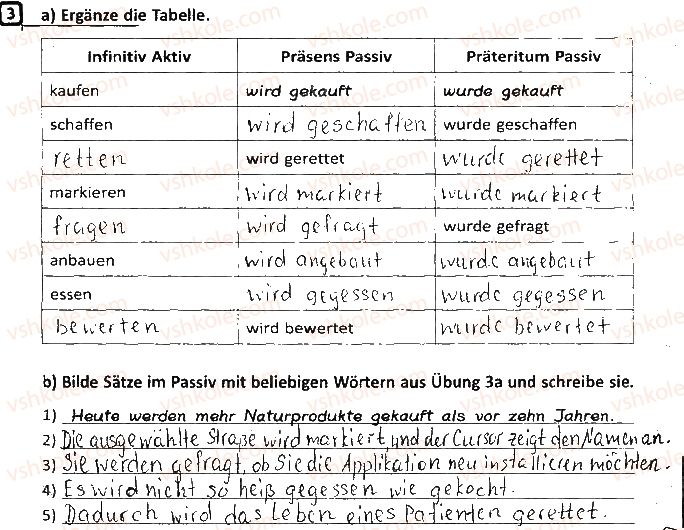 3 a) Ergänze die Tabelle.
Infinitiv Aktiv Präsens Passiv Präteritum Passiv
kaufen wird gekauft wurde gekauft
schaffen wird geschaffen wurde geschaffen
retten wird gerettet wurde gerettet
markieren wird markiert wurde markiert
fragen wird gefragt wurde gefragt
anbauen wird angebaut wurde angebaut
essen wird gegessen wurde gegessen
bewerten wird bewertet wurde bewertet
b) Bilde Sätze im Passiv mit beliebigen Wörtern aus Übung 3a und schreibe sie.
1) Heute werden mehr Naturprodukte gekauft als vor zehn Jahren.
2) Die ausgewählte Straße wird markiert und der Cursor zeigt den Namen an.
3) Sie werden gefragt, ob Sie die Applikation neu installieren möchten.
4) Es wird nicht so heiß gegessen wie gekocht.
5) Dadurch wird das Leben eines Patienten gerettet.
vshkole.com